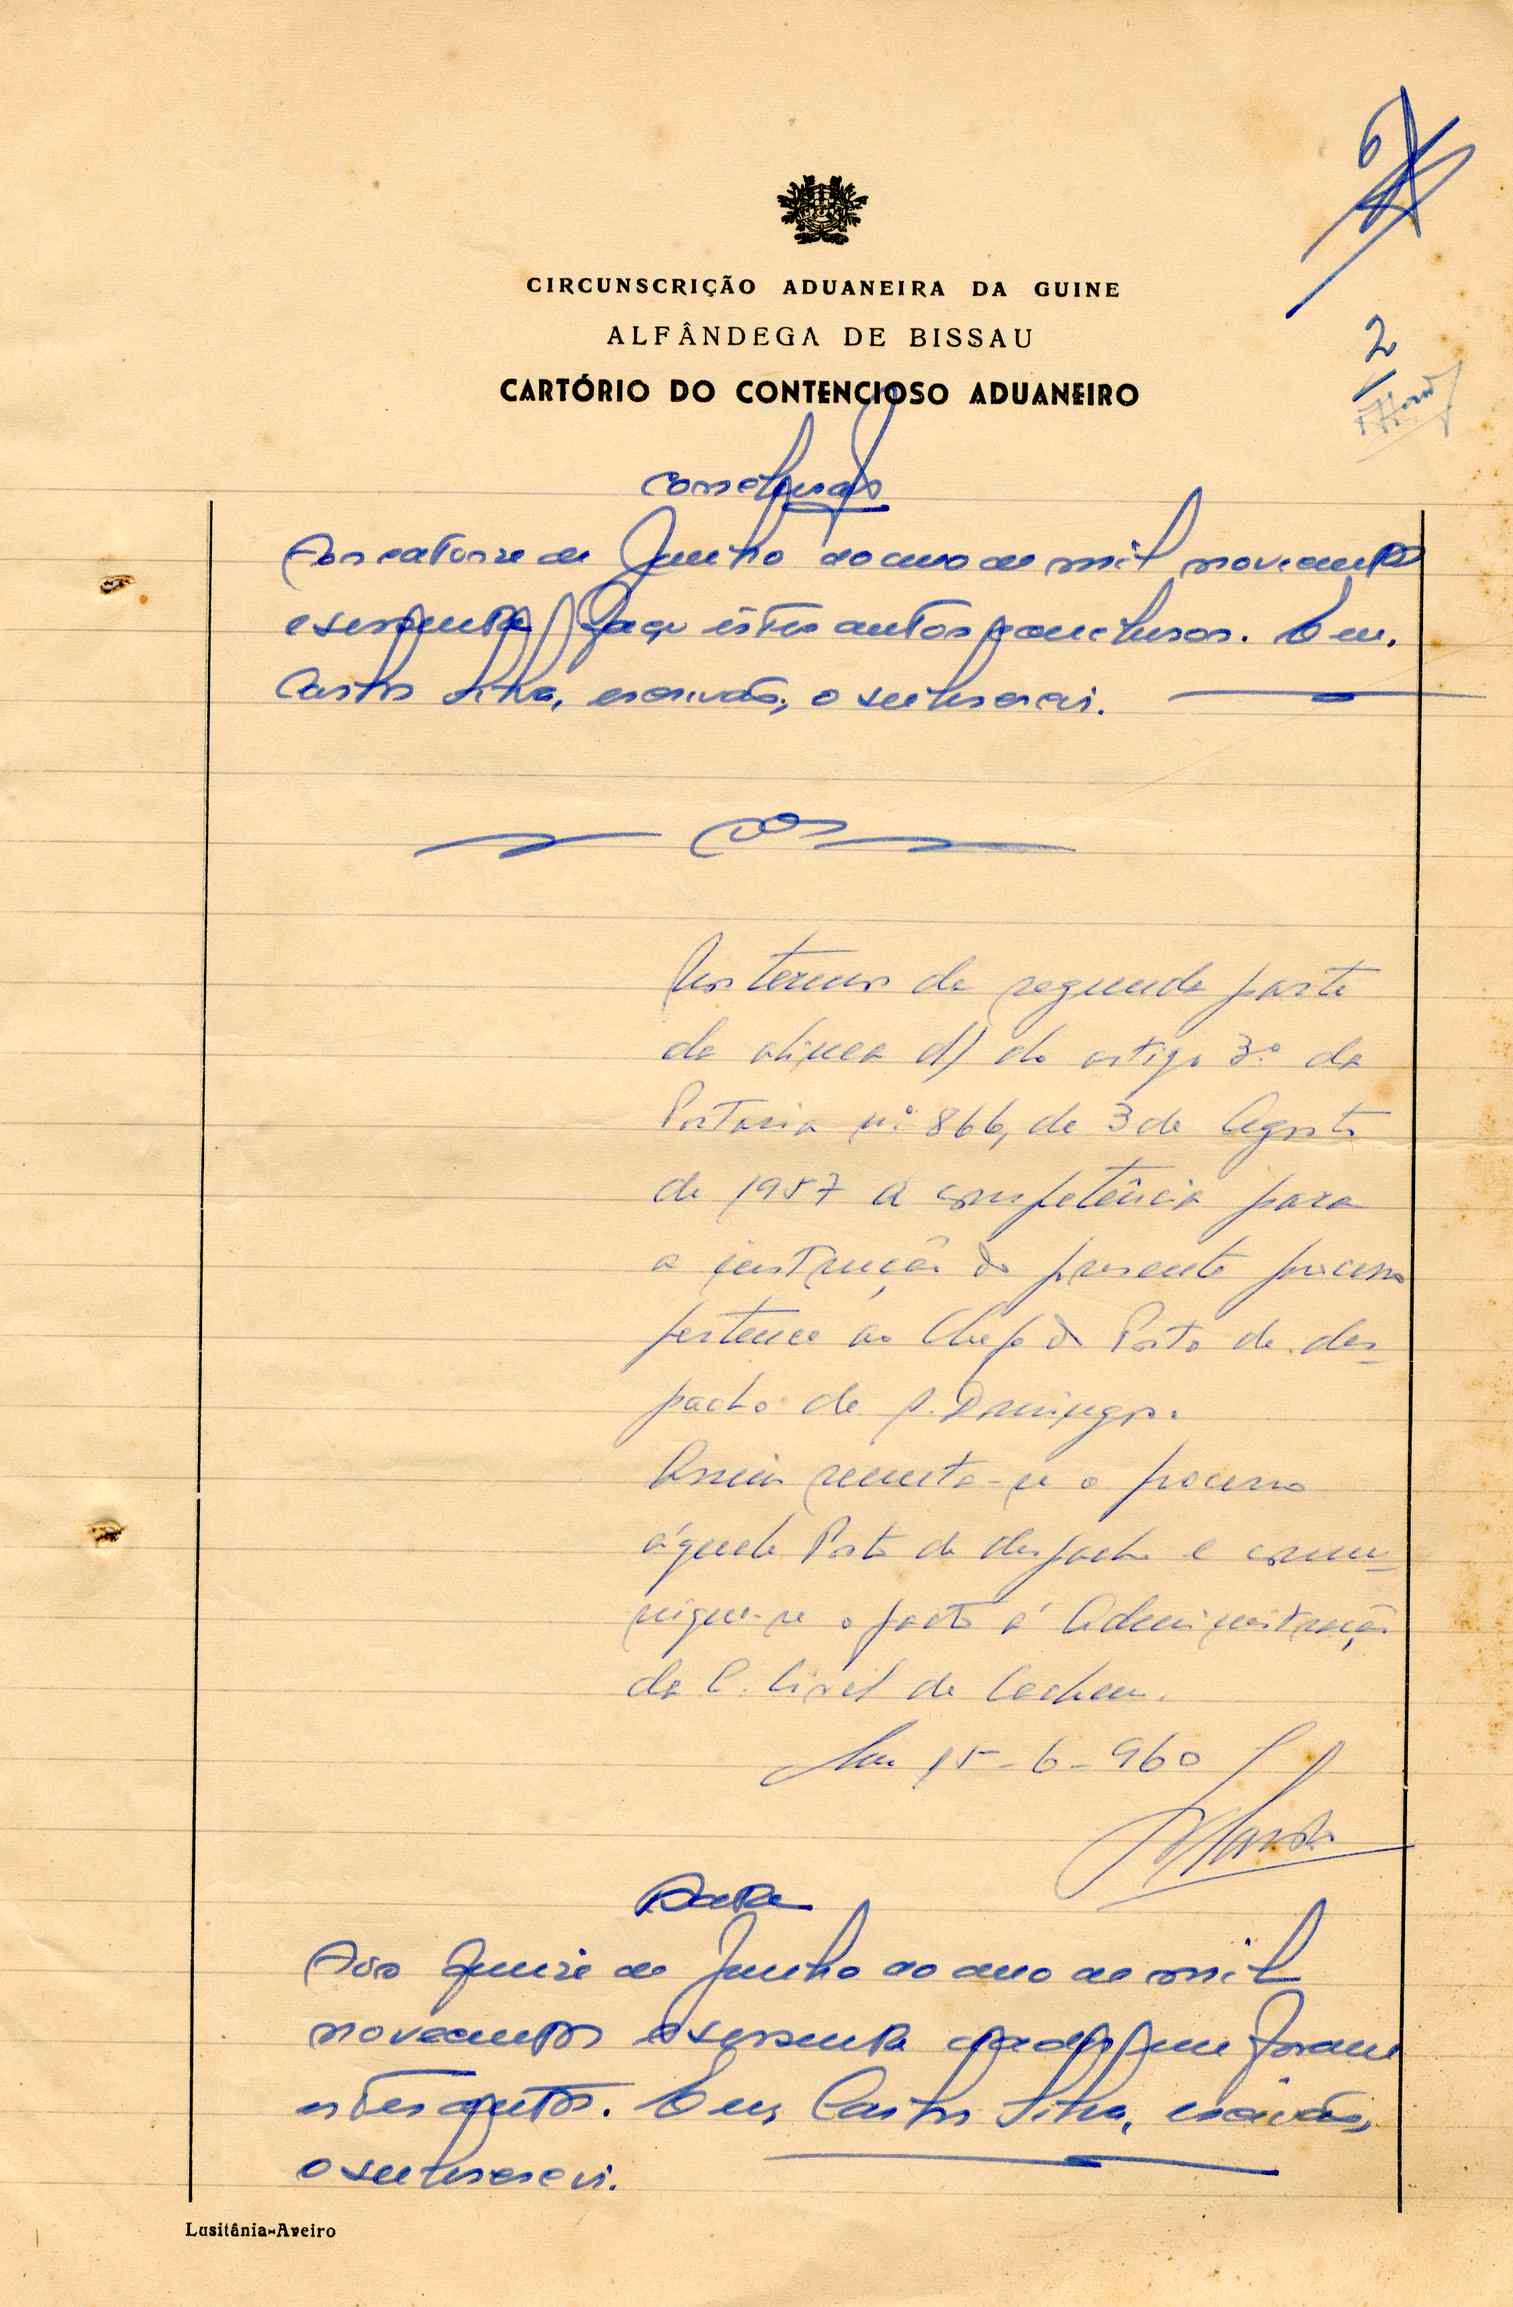 6
CIRCUNSCRIÇÃO ADUANEIRA DA GUINE
ALFÂNDEGA DE BISSAU
2
CARTÓRIO DO CONTENCIOSO ADUANEIRO
Conclusão
Aos catorze de Junho do ano de mil novecentos
e sessenta, faço êstes autos conclusos. E eu,
Castro Silva, escrivão, o subscrevi.
Nos termos da segunda parte
da alínea d) do artigo 3.º da
Portaria n.º 866, de 3 de Agosto
de 1957 a competência para
a instrução do presente processo
pertence ao Chefe do Posto de des-
pacho de S. Domingos.
Assim remeta-se o processo
àquele Posto de despacho e comu-
nique-se o facto à Administração
da C. Civil de Cacheu.
Em 15-6-960
Data
Aos quinze de Junho do ano de mil
novecentos e sessenta me foram
estes autos. E eu, Castro Silva, escrivão,
o subscrevi.
Lusitânia-Aveiro